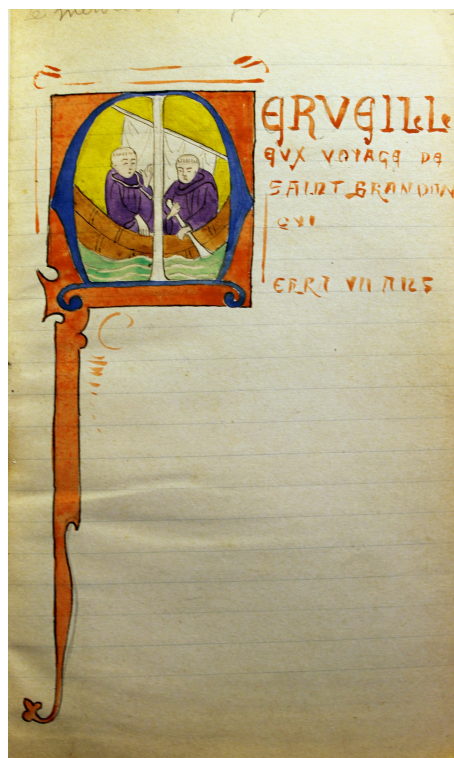 MERVEILL
EVX VOYAGE DE
SAINT BRANDON
QVI
ERRA VII ANS